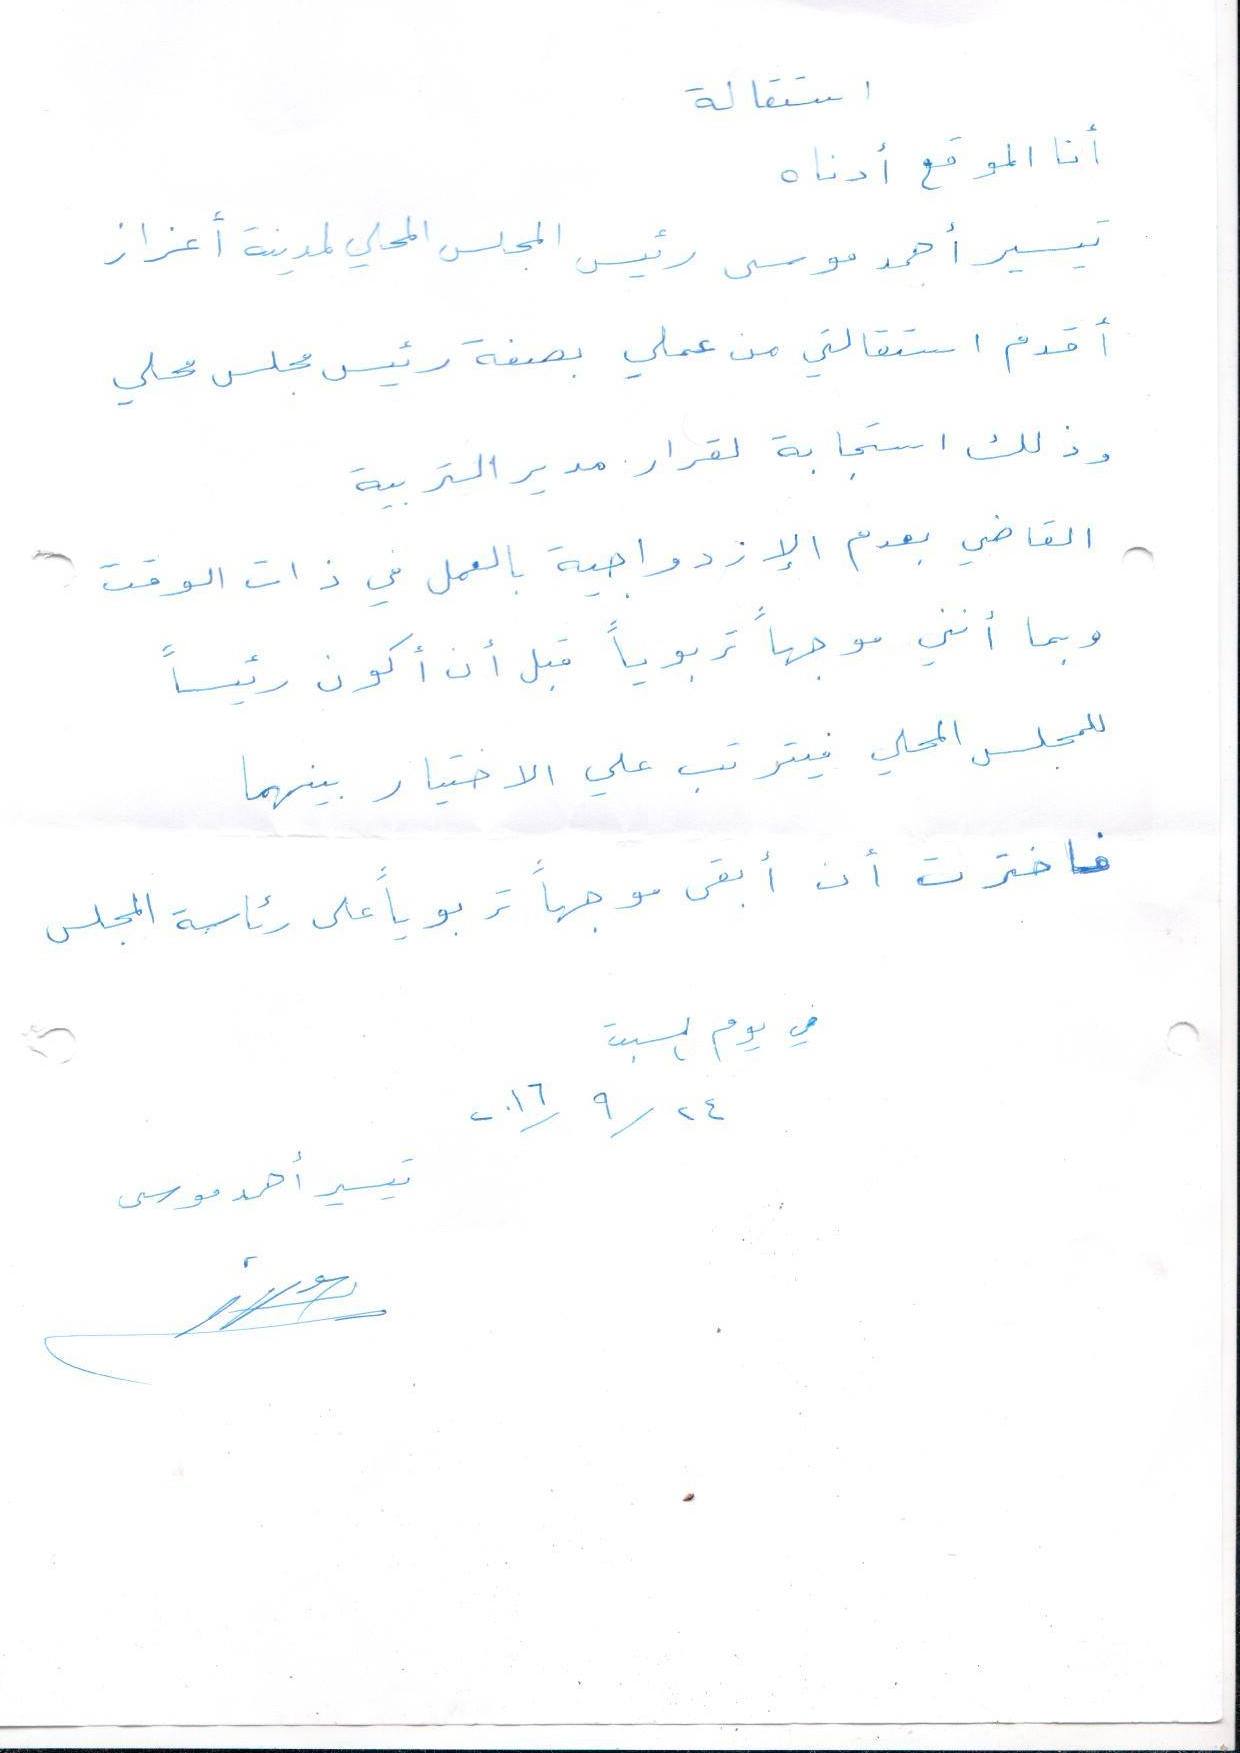 استقالة
أنا الموقع أدناه
تيسير أحمد موسى رئيس المجلس المحلي لمدينة أعزاز
أقدم استقالتي من عملي بصفة رئيس مجلس محلي
وذلك استجابة لقرار مدير التربية
القاضي بعدم الإزدواجية بالعمل في ذات الوقت
وبما أنني موجهاً تربوياً قبل أن أكون رئيساً
للمجلس المحلي فيترتب علي الاختيار بينهما
فاخترت أن أبقى موجهاً تربوياً على رئاسة المجلس
في يوم السبت
٢٤/٩/٢٠١٦
تيسير أحمد موسى